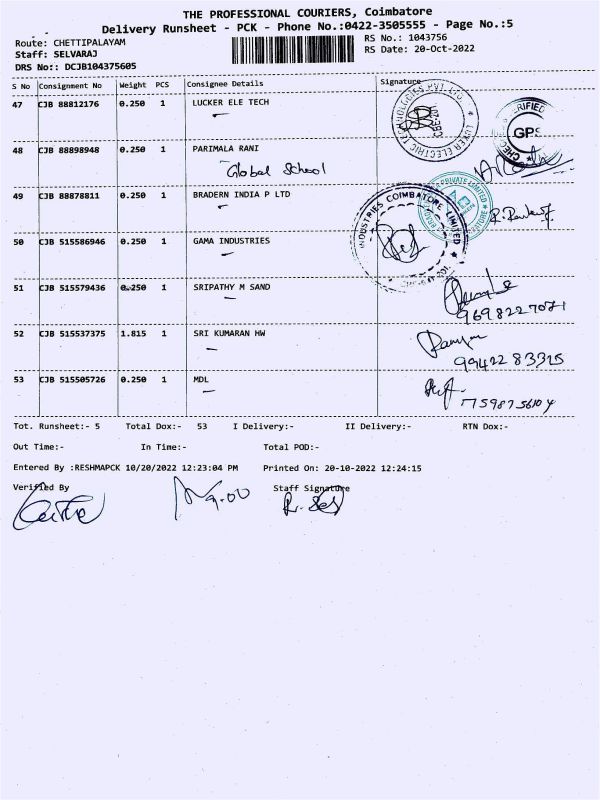 THE PROFESSIONAL COURIERS, Coimbatore
Delivery Runsheet - PCK - Phone No.:0422-3505555 - Page No.:5
Route: CHETTIPALAYAM
RS No.: 1043756
Staff: SELVARAJ
RS Date: 20-Oct-2022
DRS No:: DCJB104375605
S No Consignment No Weight PCS Consignee Details Signature
47 CJB 88812176 0.250 1 LUCKER ELE TECH
48 CJB 88898948 0.250 1 PARIMALA RANI
Global School
49 CJB 88878811 0.250 1 BRADERN INDIA P LTD
50 CJB 515586946 0.250 1 GAMA INDUSTRIES
51 CJB 515579436 0.250 1 SRIPATHY M SAND
9698227071
52 CJB 515537375 1.815 1 SRI KUMARAN HW
9942283325
53 CJB 515505726 0.250 1 MDL
Tot. Runsheet:- 5 Total Dox:- 53 I Delivery:- II Delivery:- RTN Dox:-
Out Time:- In Time:- Total POD:-
Entered By :RESHMAPCK 10/20/2022 12:23:04 PM Printed On: 20-10-2022 12:24:15
Verified By Staff Signature
9.00